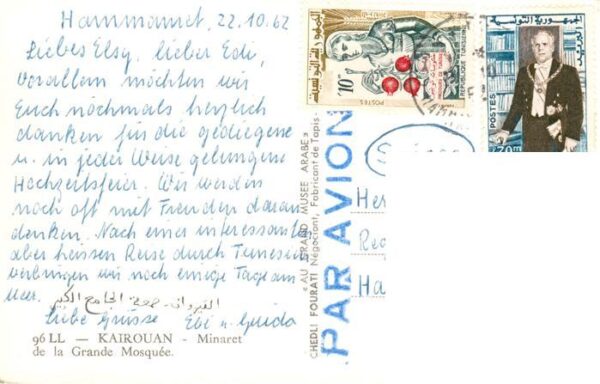 Hammamet, 22.10.62
Liebes Elsy, lieber Edi,
Vorallem möchten wir
Euch nochmals herzlich
danken für die gediegene
u. in jeder Weise gelungene
Hochzeitsfeier. Wir werden
noch oft mit Freuden daran
denken. Nach einer interessanten
aber heissen Reise durch Tunesien
verbringen wir noch einige Tage am
Meer.
القيروان - صومعة الجامع الكبير
Liebe Grüsse Edi u. Guida
96 LL — KAIROUAN - Minaret
de la Grande Mosquée.
« AU GRAND MUSEE ARABE »
CHEDLI FOURATI Négociant, Fabricant de Tapis
PAR AVION
الجمهورية التونسية
10
POSTES
REPUBLIQUE TUNISIENNE
الجمهورية التونسية
البريد
POSTES
20
Her
Red
Ha